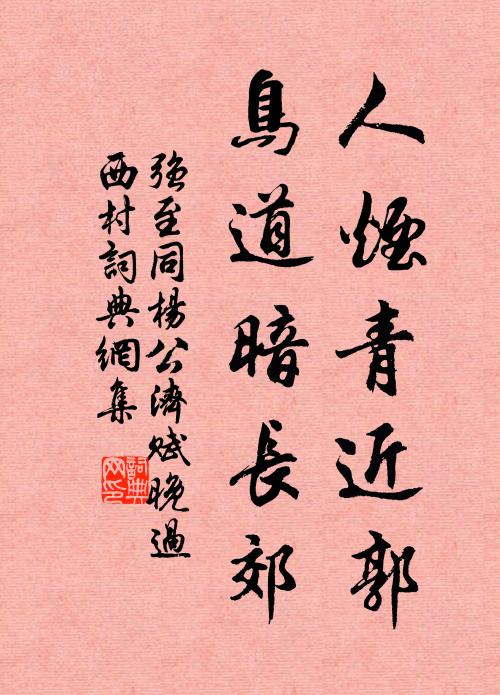 人煙青近郭
鳥道暗長郊
強至同楊公濟賦晚過
西村詞典網集
詞典
网印